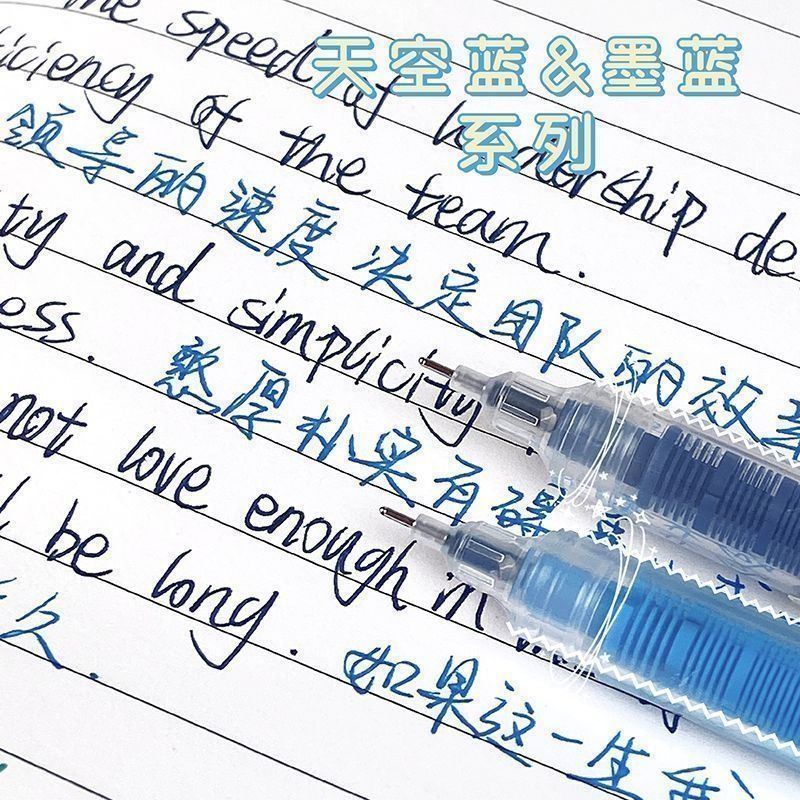 天空蓝&墨蓝
系列
he speed of
iciency of the team.
领导的速度决定团队的效
ty and simplicity
ess. 憨厚朴实有
not love enough in
be long. 如果这一生
久.